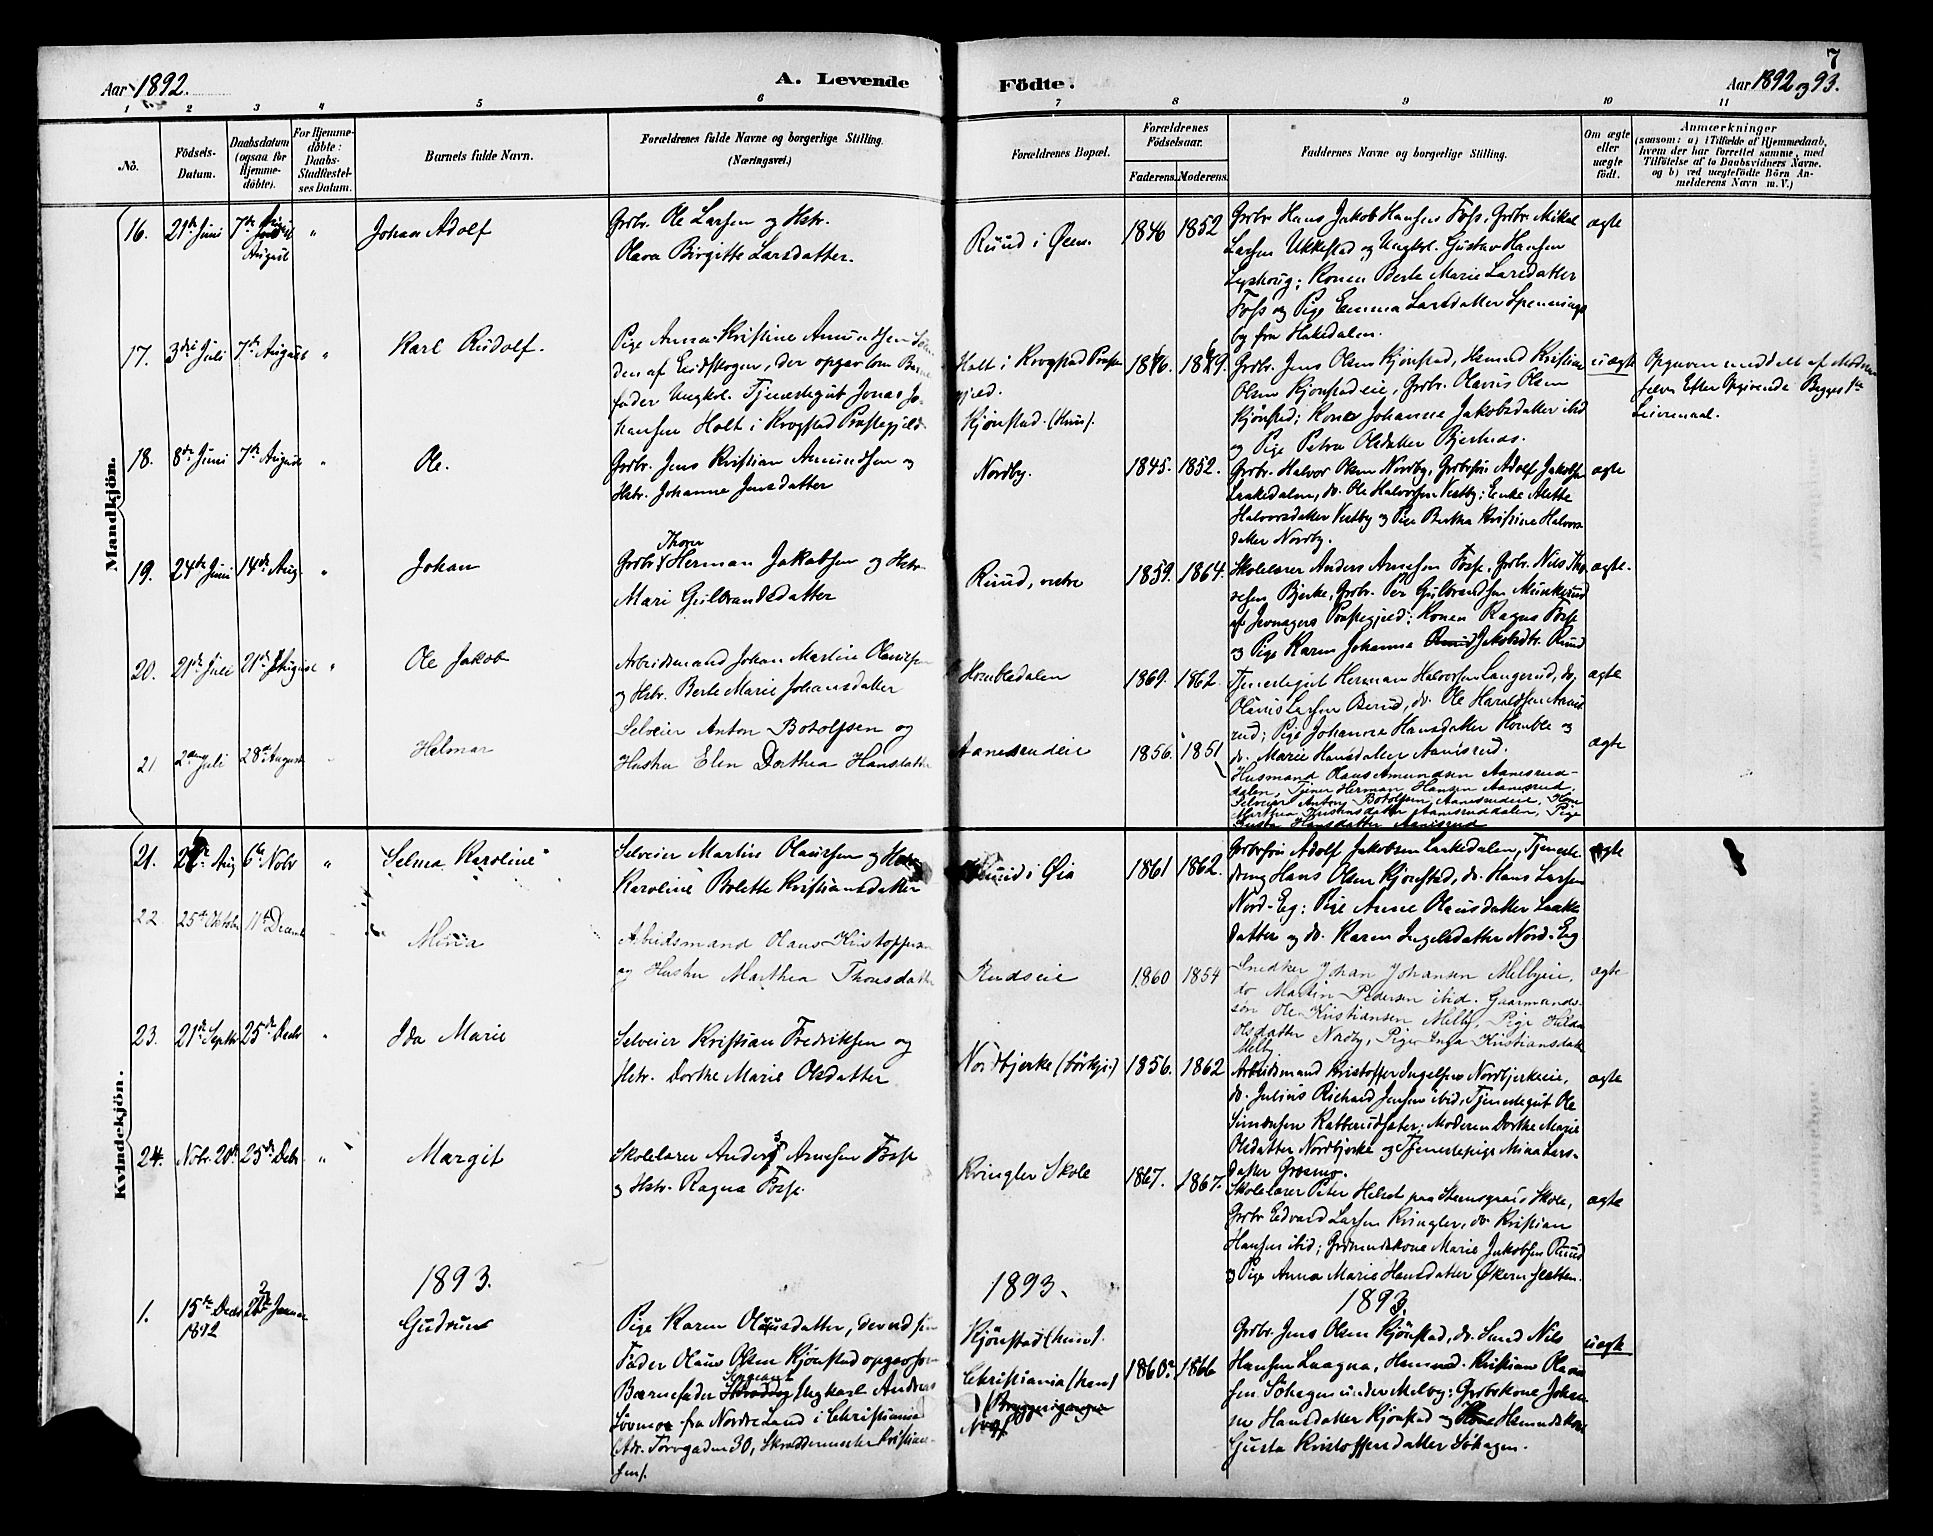 7
Aar 1892.
A. Levende
Födte.
Aar 1892 og 93.
1 2 3 4 5 6 7 8 9 10 11
No.
Födsels-
Datum.
Daabsdatum
(ogsaa for
Hjemme-
döbte).
For Hjemme-
döbte:
Daabs-
Stadfæstel-
ses Datum.
Barnets fulde Navn.
Forældrenes fulde Navne og borgerlige Stilling.
(Næringsvei.)
Forældrenes Bopæl.
Forældrenes
Födselsaar.
Faderens. Moderens.
Faddernes Navne og borgerlige Stilling.
Om ægte
eller
uægte
födt.
Anmærkninger
(saasom: a) i Tilfælde af Hjemmedaab,
hvem der har forrettet samme, med
Tilföielse af to Daabsvidners Navne,
og b) ved uægtefödte Börn An-
melderens Navn m. V.)
Mandkjön.
16. 21de Juni 7de August " Johan Adolf
Grbr. Ole Larsen og Hstr.
Olava Birgitte Larsdatter.
Ruud i Øen. 1846 1852
Grbr. Hans Jakob Hansen Foss, Grbr. Mikal
Larsen Ukkestad og Ungkrl. Gustav Hansen
Lyshoug; Konen Berte Marie Larsdatter
Foss og Pige Emma Larsdatter Spennings
by fra Hakedalen.
ægte
17. 3die Juli 7de August " Karl Rudolf.
Pige Anna Kristine Amundsen
den af Eidskogen, der opgav som Barne
fader Ungkrl. Tjenestegut Jonas Jo-
hansen Holt i Krogstad Præstegjeld
Holt i Krogstad Præste
gjeld.
Kjönstad (hun).
Grbr. Jens Olsen Kjönstad, Hmand Kristian
Olsen Kjönstadeie, Grbr. Olavus Olsen
Kjönstad; Kone Johanne Jakobsdatter ibid
og Pige Petra Olsdatter Bjerknes.
uægte
Opgaven meddelt af Moderen
selv. Efter Opgivende Begges 1ste
Leiermaal.
18. 8de Juni 7de August " Ole.
Grbr. Jens Kristian Amundsen og
Hstr. Johanne Jensdatter
Nordby. 1845. 1852.
Grbr. Halvor Olsen Nordby, Grbrsön Adolf Jakobsen
Laakedalen, do. Ole Halvorsen Vestby; Enke Alette
Halvorsdatter Vestby og Pige Bertha Kristine Halvors
datter Nordby.
ægte
19. 24de Juni 14de Aug. " Johan
Thorer
Grbr. Herman Jakobsen og Hstr.
Mari Gulbrandsdatter
Ruud, vestre 1859. 1864.
Skolelærer Anders Arnesen Fosse, Grbr. Nils Tho
resen Bjerke, Grbr. Per Gulbrandsen Munkerud
af Jevnagers Præstegjeld; Konen Ragna Fosse
og Pige Karen Johanne Ruud Jakobsdtr. Ruud
ægte.
20. 21de Juli 21de August " Ole Jakob
Arbeidsmand Johan Martin Olausen
og Hstr. Berte Marie Johansdatter
Hombledalen 1869. 1862.
Tjenestegut Herman Halvorsen Langerud, do.
Olaus Larsen Berud, do. Ole Haraldsen Aanes
rud; Pige Johanne Hansdatter Homble og
do. Marie Hansdatter Aanesrud.
ægte
21 2den Juli 28de August Helmar
Selveier Anton Botolfsen og
Hustru Elen Dorthea Hansdatter
Aanesrudeie 1856. 1851
Husmand Claus Amundsen Aanesrud-
dalen, Tjener Herman Hansen Aanesrud,
Selveier Anton Botolfsen Aanesrudeie, Kone
Marthea Kristensdatter Aanesruddalen, Pige
Gusta Hansdatter Aanesrud
ægte
Kvindekjön.
21. Aug 6te Novbr " Selma Karoline
Selveier Martin Olaussen og Hstr.
Karoline Bolette Kristiansdatter
Ruud i Øia 1861 1862.
Grbrsön Adolf Jakobsen Laakedalen, Tjeneste
dreng Hans Olsen Kjönstad, do. Hans Larsen
Nord-Eng; Pige Anne Olausdatter Laake
datter og do. Karen Ingelsdatter Nord-Eng
ægte
22 25de Oktober 11te Decemb Mina
Arbeidsmand Olaus Kristoffersen
og Hustru Marthea Thorsdatter
Rudseie 1860 1854
Snedker Johan Johansen Melbyeie,
do Martin Pedersen ibid. Gaarmands-
søn Ole Kristiansen Melby, Pige Hilda
Olsdatter Nordby, Pige Inga Kristiansdatter
Melby
ægte
23. 21de Septbr 25de Decbr " Ida Marie
Selveier Kristian Fredriksen og
Hstr. Dorthe Marie Olsdatter
Nordbjerke 1856. 1862
Arbeidsmand Kristoffer Ingelsen Nordbjerkeeie,
do. Julius Richard Jensen ibid, Tjenestegut Ole
Simensen Ratterudsæter; Moderen Dorthe Marie
Olsdatter Nordbjerke og Tjenestepige Mina Lars-
datter Grasmo.
ægte
24. Novbr. 20de 25de Debr. " Margit
Skolelærer Anders Arnesen Fosse
og Hstr. Ragna Fosse.
Kringler Skole 1867. 1867.
Skolelærer Peter Helset paa Stensgrav's Skole,
Grbr. Edvard Larsen Kringler, do. Kristian
Hansen ibid; Grdmandskone Marie Jakobsen Ruud
og Pige Anna Marie Hansdatter Økernsletten.
ægte
1893. 1893. 1893.
1. 15de Decbr 1892 Januar Gudrun
Pige Karen Olausdatter, der ved sin
Fader Olaus Olsen Kjönstad opgav som
Barnefader Ungkarl Andreas
Lövmoe fra Nordre Land i Christiania
(Adr. Torvgaden 30, Skræddermester Kristian-
sen).
Kjönstad (hun).
Christiania (han)
1860. 1866
Grbr. Jens Olsen Kjönstad, do. Sønd Nils
Hansen Laagna, Hsmand. Kristian Olavus
sen Söhagen under Melby; Grbrskone Johan
ne Hansdatter Kjönstad og Hsmandskone
Gusta Kristoffersdatter Söhagen.
uægte